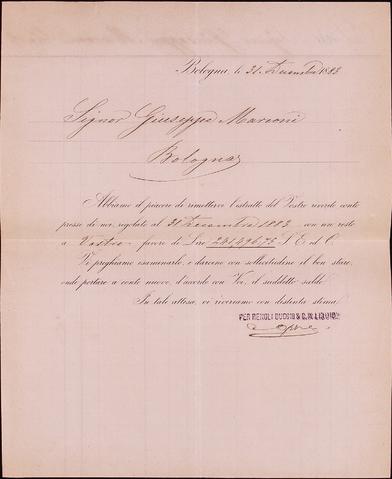 Bologna, le 31 Decembre 1883
Signor Giuseppe Marconi
Bologna
Abbiamo il piacere di rimettervi l'estratto del Vostro ricordo conto
presso di noi, regolato al 31 Decembre 1883 con un resto
a Vostro favore di Lire S. E. ed O.
Vi preghiamo esaminarlo, e darcene con sollecitudine il ben stare,
onde portare a conto nuovo, d'accordo con Voi, il suddetto saldo.
In tale attesa, vi riveriamo con distinta stima.
PER RENOLI BUGGIO & C. IN LIQUID.